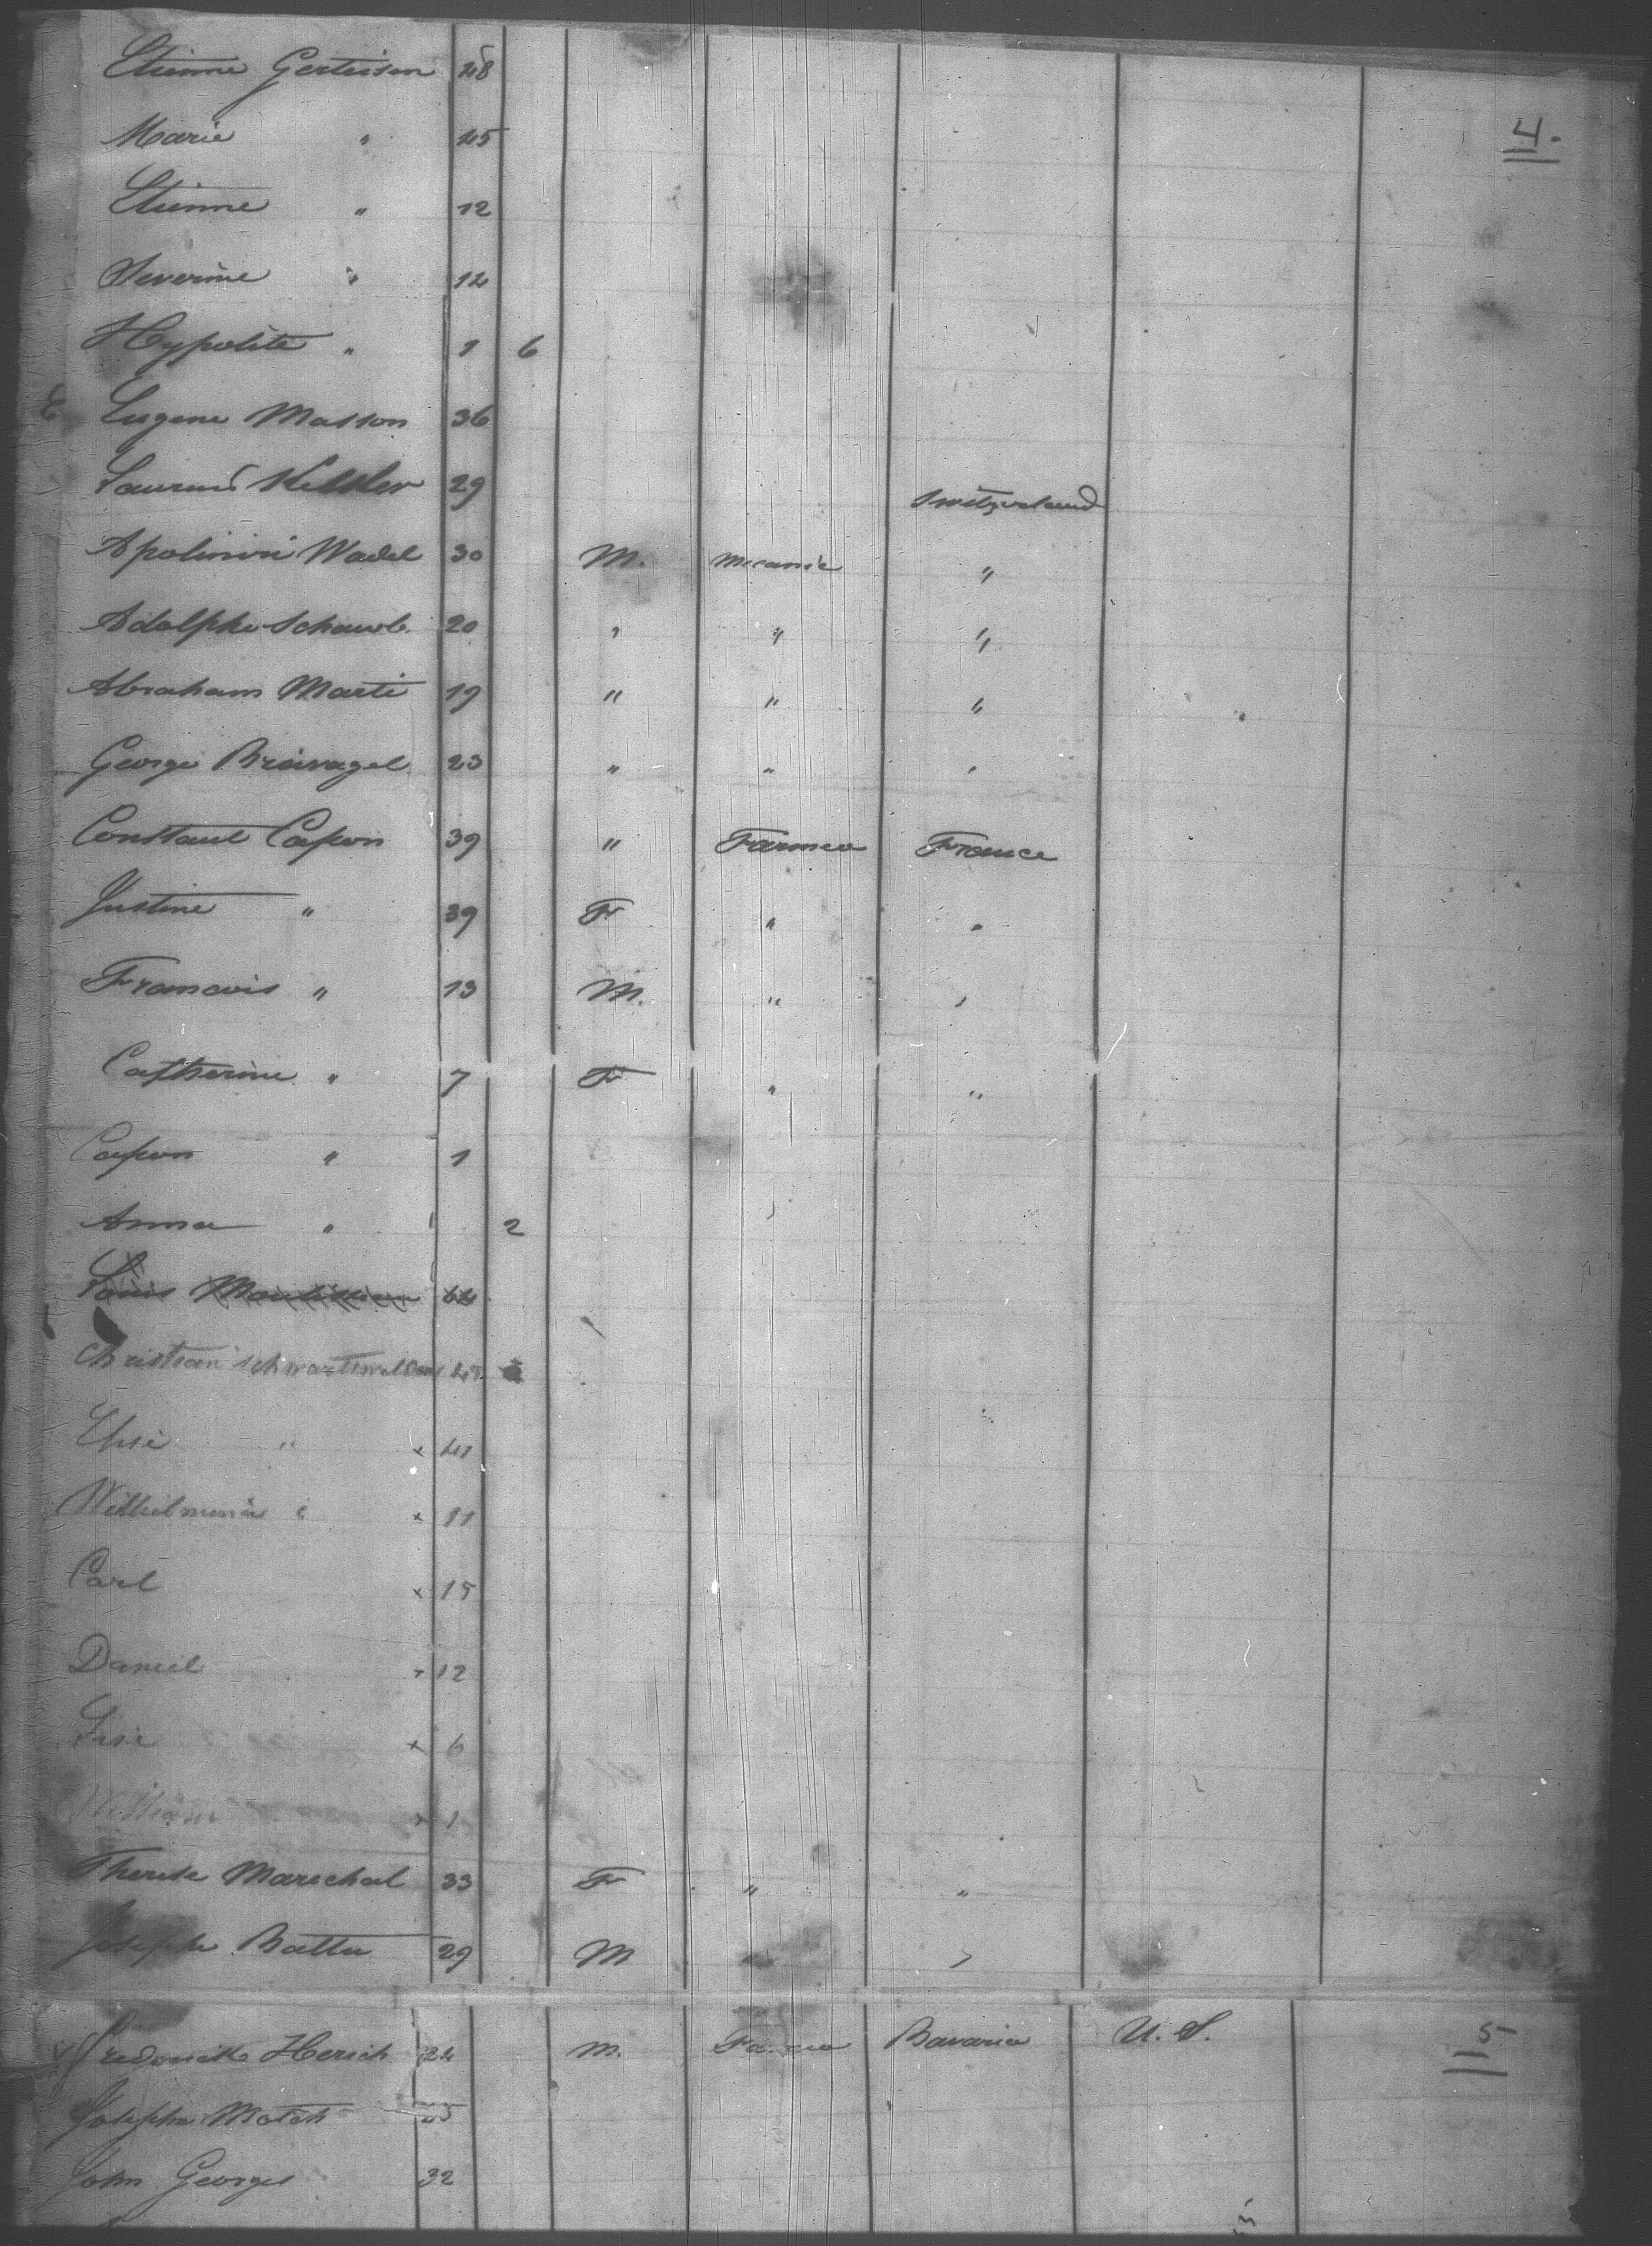 Etienne Gerteisen 48
4.
Marie " 45
Etienne " 12
Severine " 12
Hypolite " 1 6
Eugene Masson 36
Laurend Kessler 29 Switzerland
Wadel 30 M. Mecanic "
Adolphe Schawb 20 " " "
Abraham Marti 19 " " "
George 23 " " "
Constant Capon 39 " Farmer France
Justine " 39 F " "
Francois " 13 M. " "
Catherine " 7 F " "
Capon " 1
Anna " 2
Louis 64
Christian
Elise " x 41
Wilhelmina " x 11
Carl x 15
Daniel x 12
Lise x 6
William x 1
Therese Marechal 33 F " "
Joseph Battu 29 M " "
Frederick Hersch 24 M. Farmer Bavaria U. S. 5
Joseph Motch 25
John Georges 32